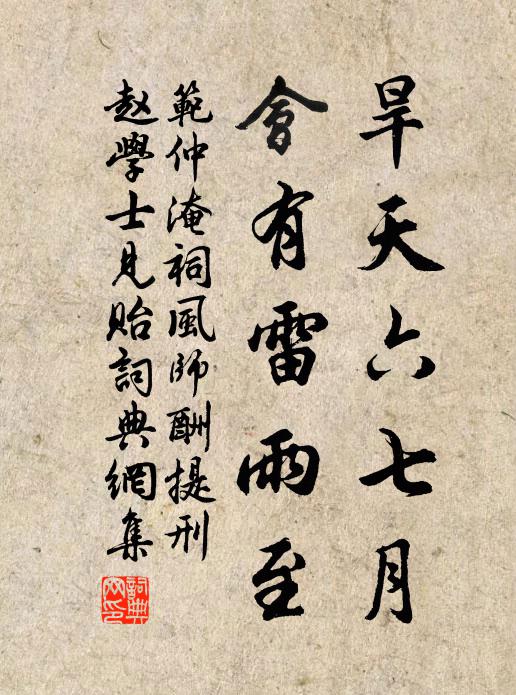 旱天六七月
會有雷雨至
範仲淹祠風師酬提刑
赵學士見貽詞典網集
詞典网印